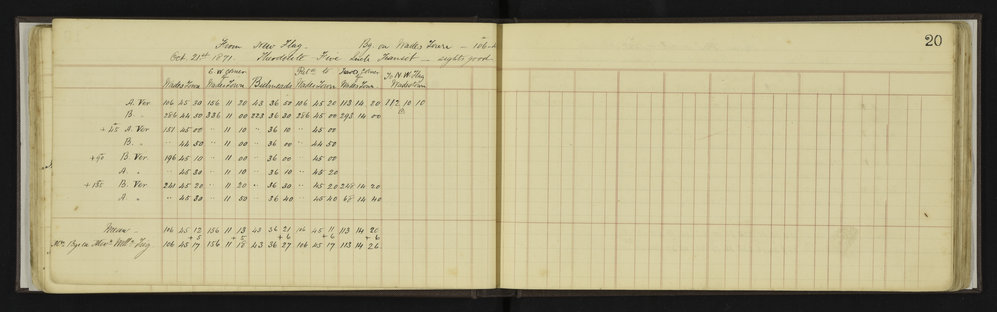 20
From New Flag. Bg. on Wades Town - 106-
Oct. 21st 1871. Theodolite Five Inch Transit - sights good
E. W. Corner Retn. to Corner To N. W. Flag
Wades Town Wades Town Wades Town Wades Town Wadestown
A. Ver 106 45 30 156 11 20 43 36 50 106 45 20 113 14 20 112 10 10
B. " 286 44 50 336 11 00 223 36 30 286 45 00 293 14 00
+45 A. Ver 151 45 00 " 11 10 " 36 10 " 45 00
B. " " 44 50 " 11 00 " 36 00 " 44 50
+90 B. Ver 196 45 10 " 11 00 " 36 00 " 45 00
A. " " 45 30 " 11 10 " 36 10 " 45 20
+135 B. Ver 241 45 20 " 11 20 " 36 30 " 45 20 248 14 20
A " " 45 30 " 11 30 " 36 40 " 45 40 68 14 40
Mean - 106 45 12 156 11 13 43 36 21 106 45 11 113 14 20
+5 +5 +6 +6 +6
Flag 106 45 17 156 11 18 43 36 27 106 45 17 113 14 26